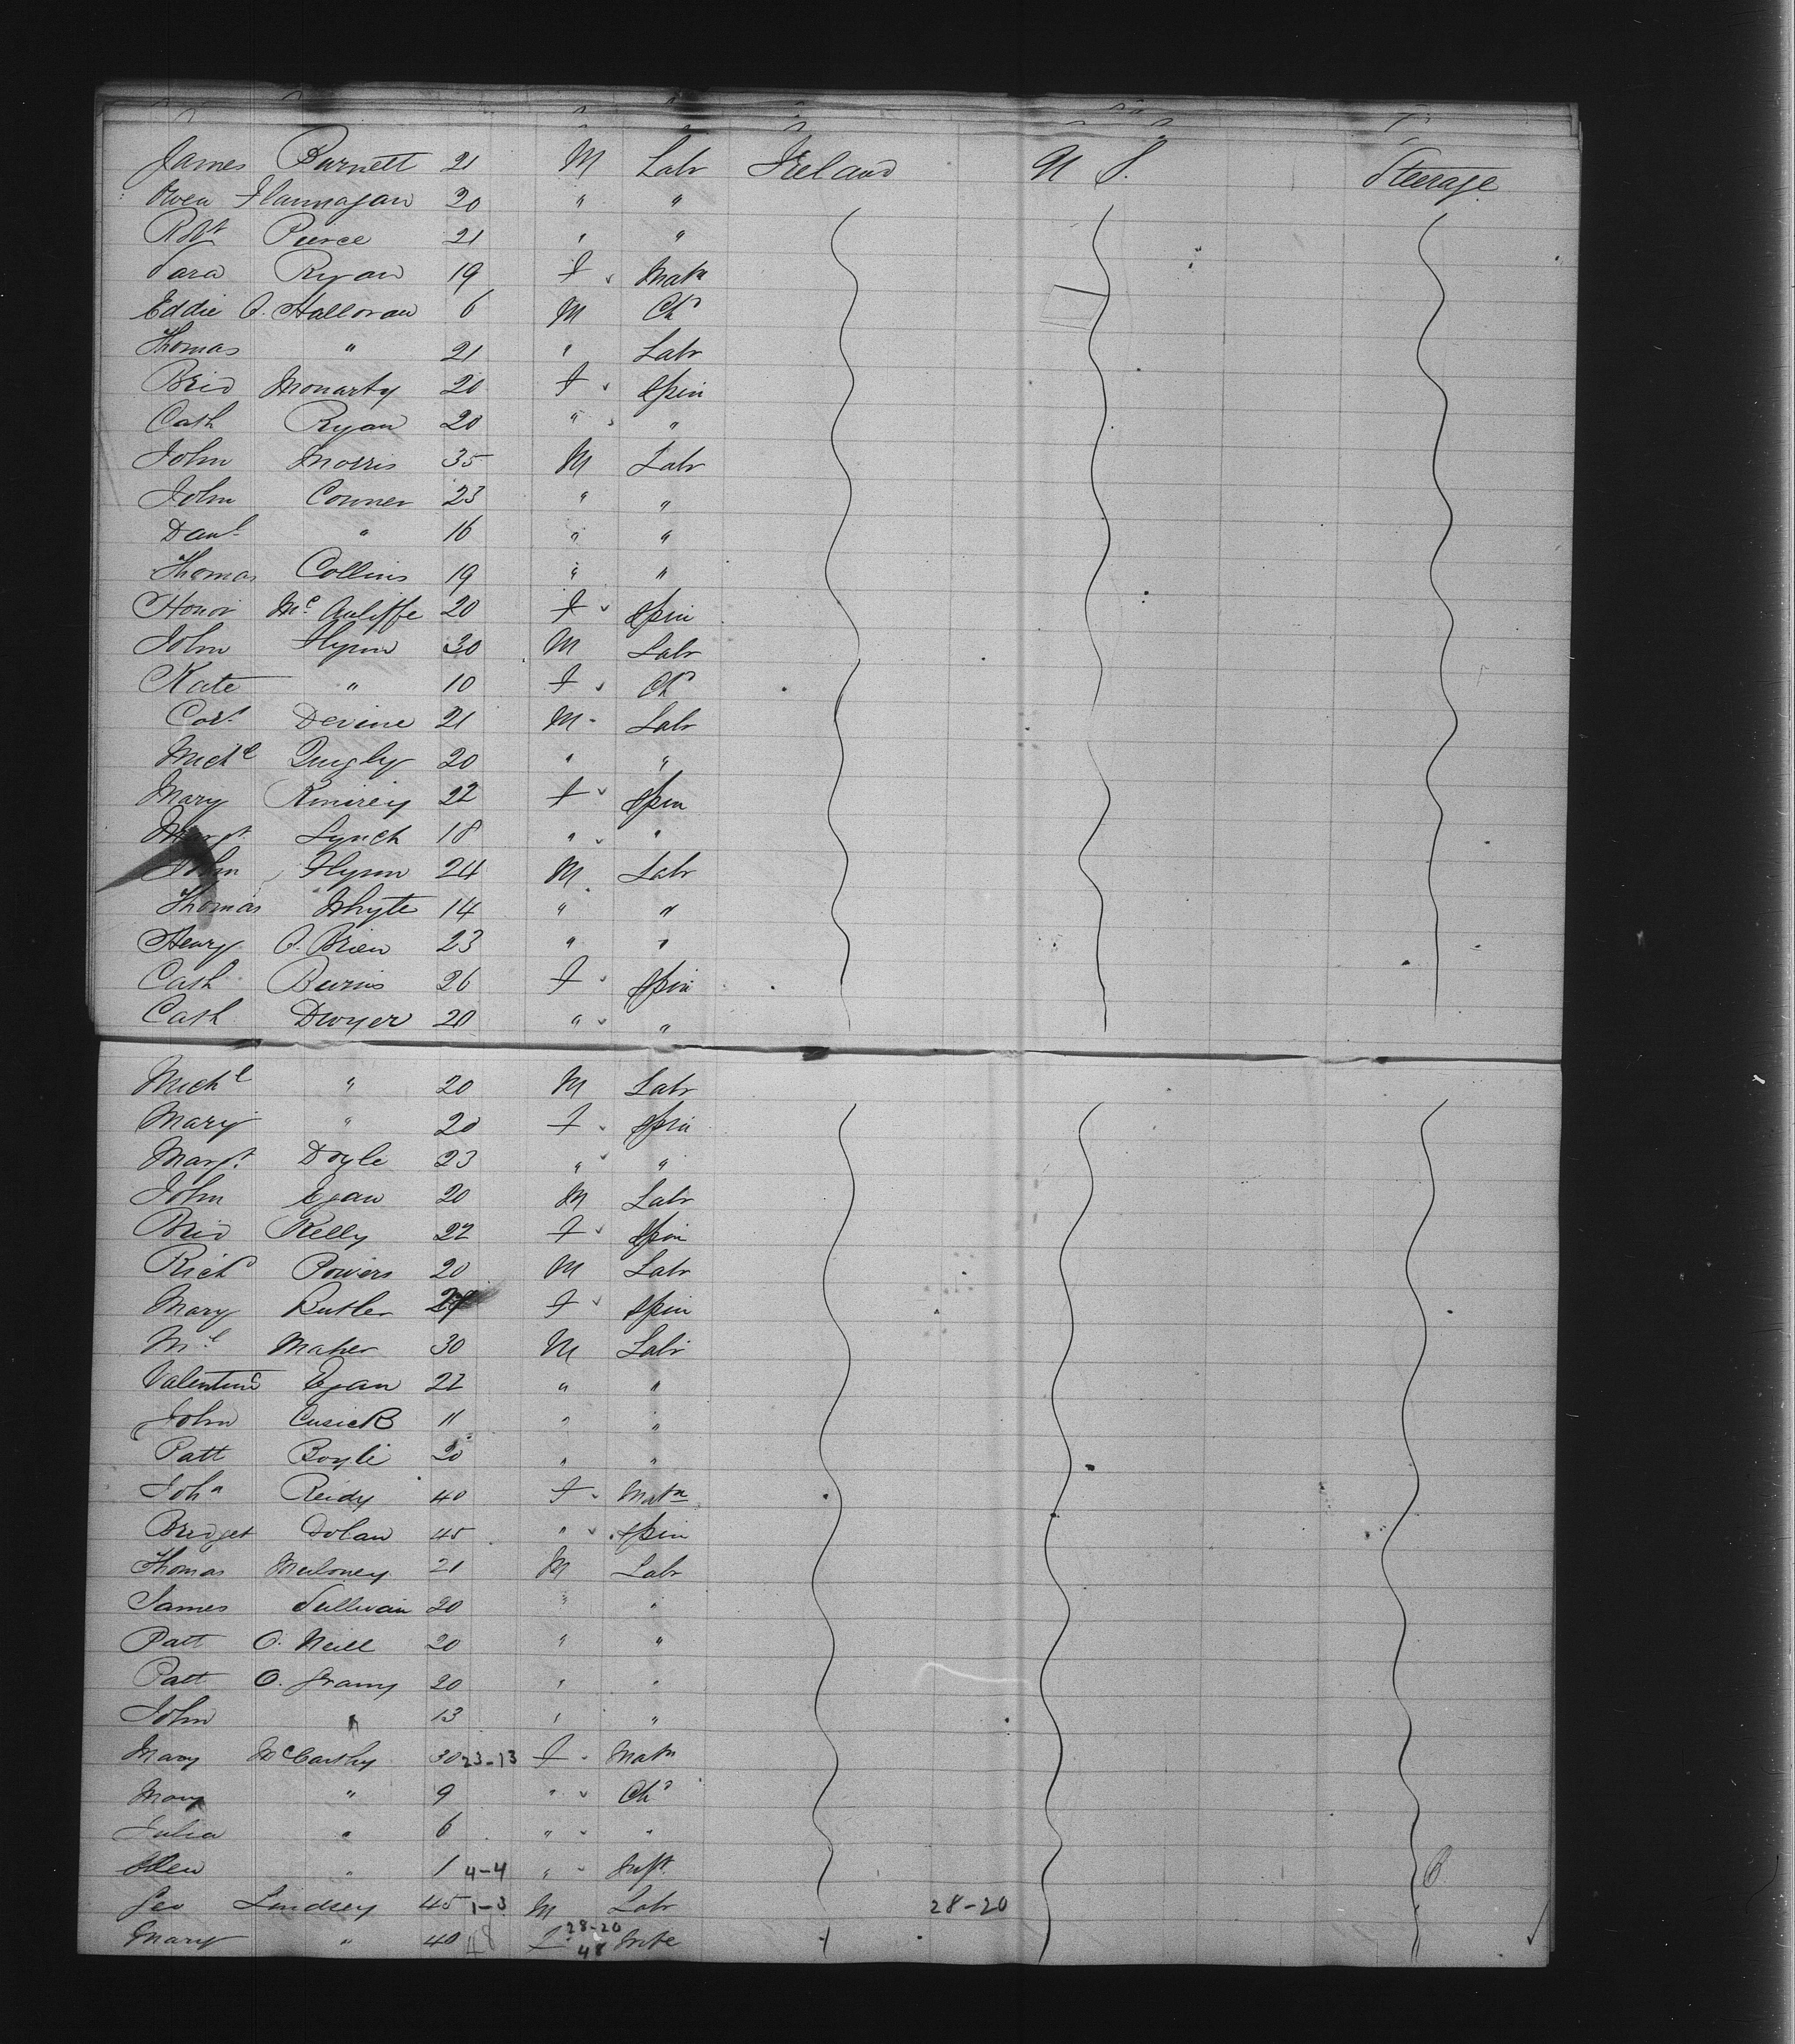 James Burnett 21 M Labr Ireland U S. Steerage
Owen Flannagan 20 " "
Robt Pierce 21 " "
Sara Ryan 19 F Matn
Eddie O. Halloran 6 M Chd
Thomas " 21 " Labr
Brid Moriarty 20 F Spin
Cath Ryan 20 " "
John Morris 35 M Labr
John Conner 23 " "
Danl " 16 " "
Thomas Collins 19 " "
Honor Mc Auliffe 20 F Spin
John Flynn 30 M Labr
Kate " 10 F Chd
Cors Devine 21 M Labr
Michl Quigly 20 " "
Mary 22 F Spin
Margt Lynch 18 " "
John Flynn 24 M Labr
Thomas Whyte 14 " "
Henry O. Brien 23 " "
Cath Burns 26 F Spin
Cath Dwyer 20 " "
Michl " 20 M Labr
Mary " 20 F Spin
Margt Doyle 23 " "
John Egan 20 M Labr
Brid Kelly 22 F Spin
Richd Powers 20 M Labr
Mary Butler F Spin
Ml Maher 30 M Labr
Valentine Egan 22 " "
John Cusick 11 " "
Patt Boyle 20 " "
Joha Reidy 40 F Matn
Bridget Dolan 45 " Spin
Thomas Muloney 21 M Labr
James Sullivan 20 " "
Patt O. Neill 20 " "
Patt O. 20 " "
John " 13 " "
Mary McCarthy 30 23-13 F Matn
Mary " 9 " Chd
Julia " 6 " "
Ellen " 1 4-4 " Inft
Geo Lindsey 45 1-3 M Labr 28-20
28-20
Mary " 40 48 F 48 Wife